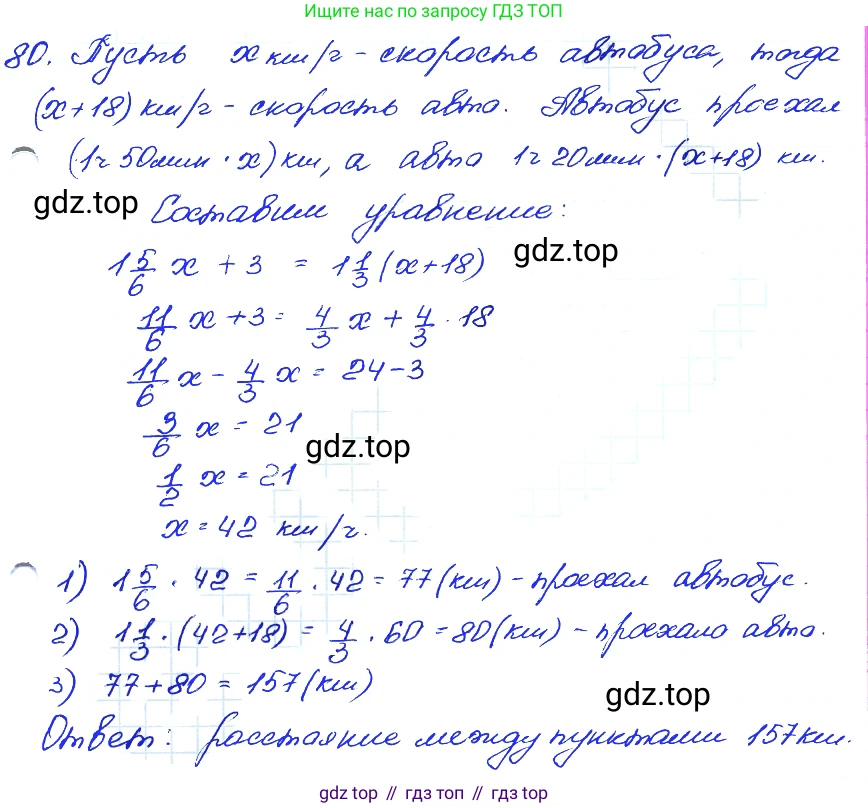 Ищите нас по запросу ГДЗ ТОП
80. Пусть x км/г - скорость автобуса, тогда
(x+18) км/г - скорость авто. Автобус проехал
(1ч 50мин · x) км, а авто 1ч 20мин · (x+18) км.
gdz.top
Составим уравнение:
gdz.top
1 5/6 x + 3 = 1 1/3 (x+18)
11/6 x + 3 = 4/3 x + 4/3 · 18
11/6 x - 4/3 x = 24-3
3/6 x = 21
gdz.top
1/2 x = 21
x = 42 км/г.
1) 1 5/6 · 42 = 11/6 · 42 = 77 (км) - проехал автобус.
2) 1 1/3 · (42+18) = 4/3 · 60 = 80 (км) - проехало авто.
3) 77+80 = 157 (км)
gdz.top
Ответ: расстояние между пунктами 157 км.
gdz.top // гдз.топ // gdz.top